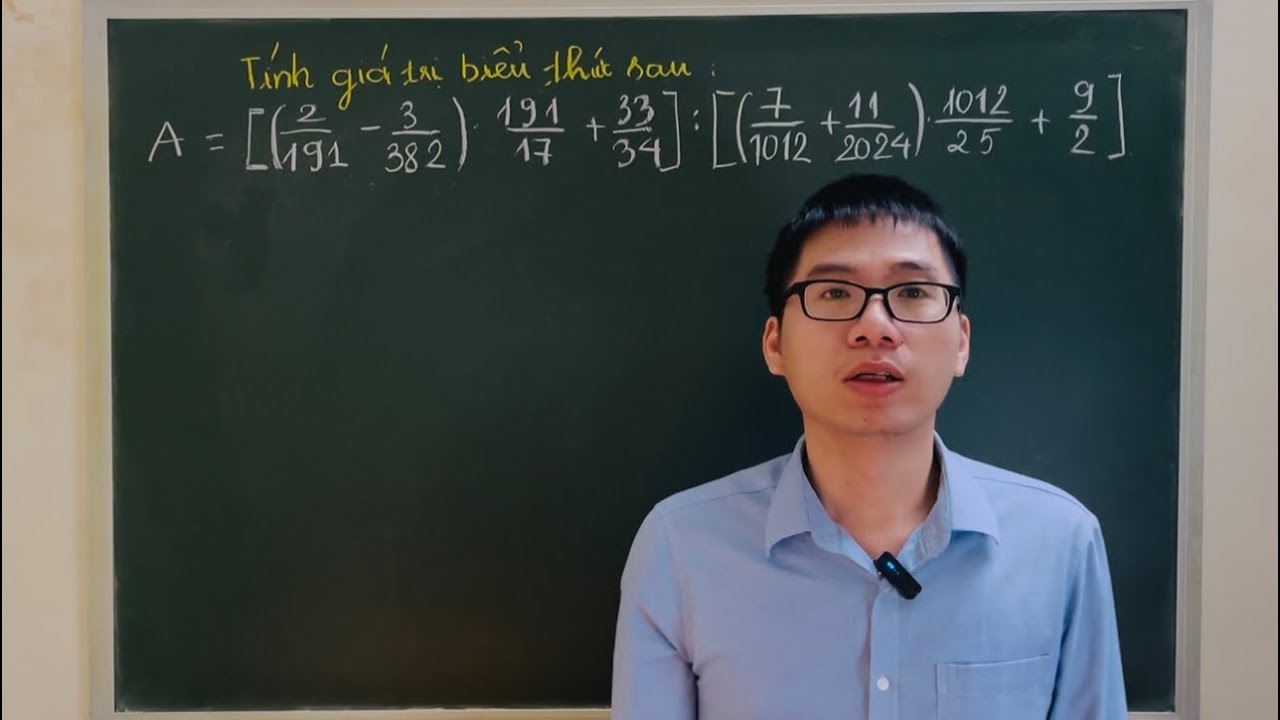 Tính giá trị biểu thức sau :
A = [(2/191 - 3/382) · 191/17 + 33/34] : [(7/1012 + 11/2024) · 1012/25 + 9/2]